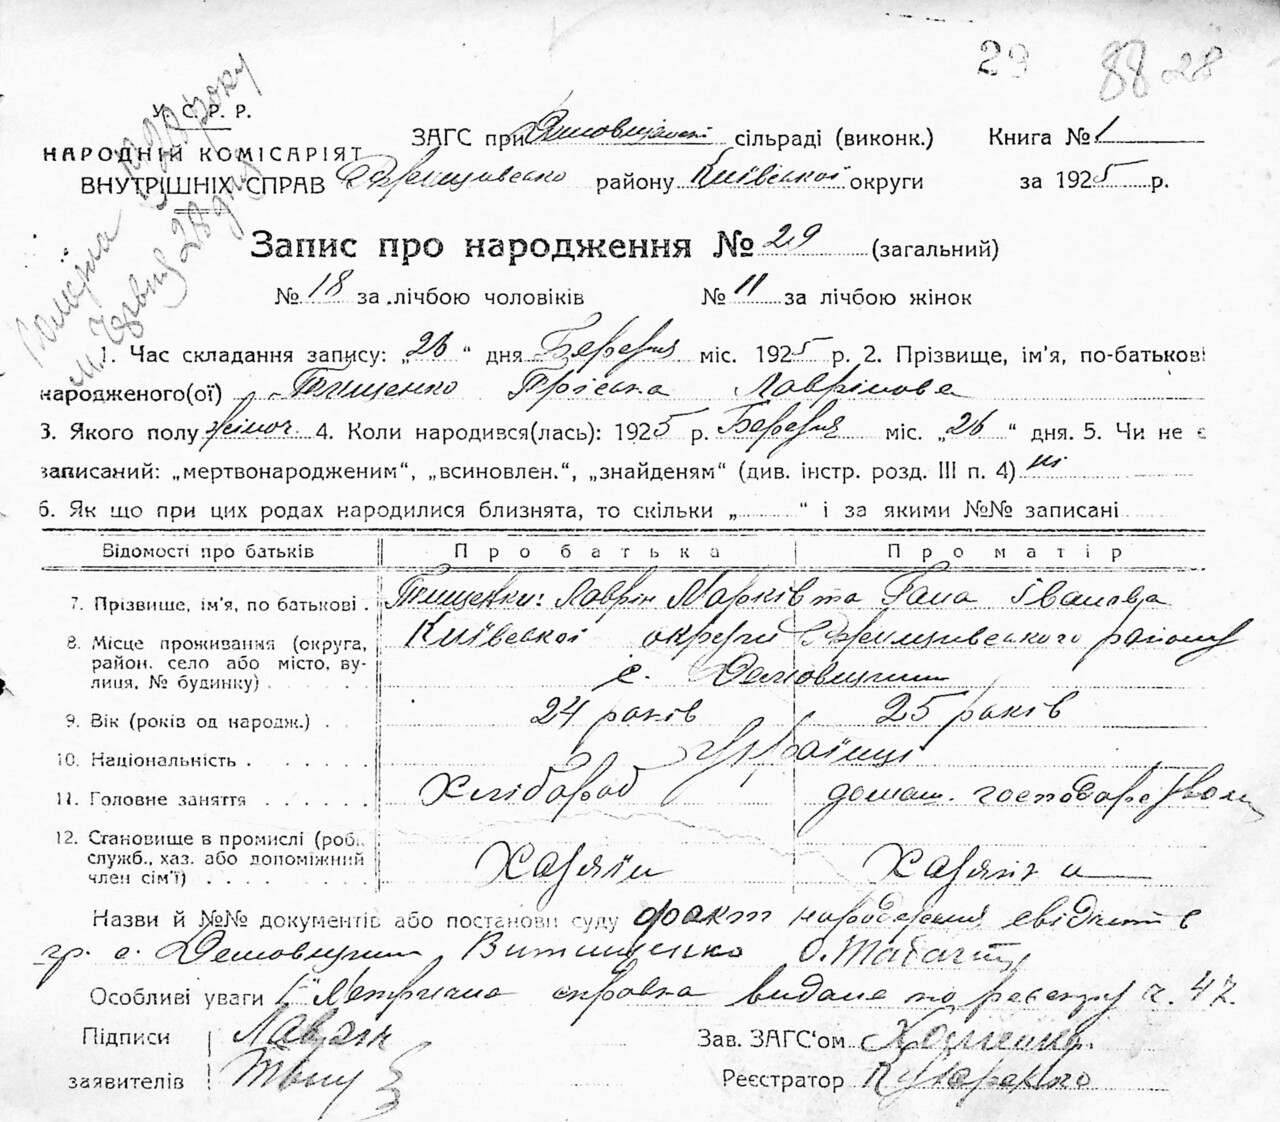 29 88 28
У. С. Р. Р.
НАРОДНІЙ КОМІСАРІЯТ
ВНУТРІШНІХ СПРАВ
ЗАГС при сільраді (виконк.) Книга № 1
району Київської округи за 1925 р.
28 дня
Запис про народження № 29 (загальний)
№ 18 за лічбою чоловіків № 11 за лічбою жінок
1. Час складання запису: „26“ дня Березня міс. 1925 р. 2. Прізвище, ім'я, по-батькові
народженого(ої) Тищенко Пріська Лаврінова
3. Якого полу жіноч. 4. Коли народився(лась): 1925 р. Березня міс. „26“ дня. 5. Чи не є
записаний: „мертвонародженим“, „всиновлен.“, „знайденям“ (див. інстр. розд. III п. 4) ні
6. Як що при цих родах народилися близнята, то скільки „ “ і за якими №№ записані
Відомості про батьків Про батька Про матір
7. Прізвище, ім'я, по батькові . Тищенки: Лаврін Марків та Гана Іванова
8. Місце проживання (округа, район, село або місто, вулиця, № будинку) . Київської округи району
с. Демовщини
9. Вік (років од народж.) . . 24 років 25 років
10. Національність . . . . . . Українці
11. Головне заняття . . . . . . Хлібороб домаш. господарство
12. Становище в промислі (роб., служб., хаз. або допоміжний член сім'ї) . . . . Хазяїн Хазяйка
Назви й №№ документів або постанови суду факт народження свідчит
гр. с. Демовщини
Особливі уваги Метрична справка видана по реєстру ч. 47.
Підписи Лаврін Зав. ЗАГС'ом
заявителів Тищ Реєстратор